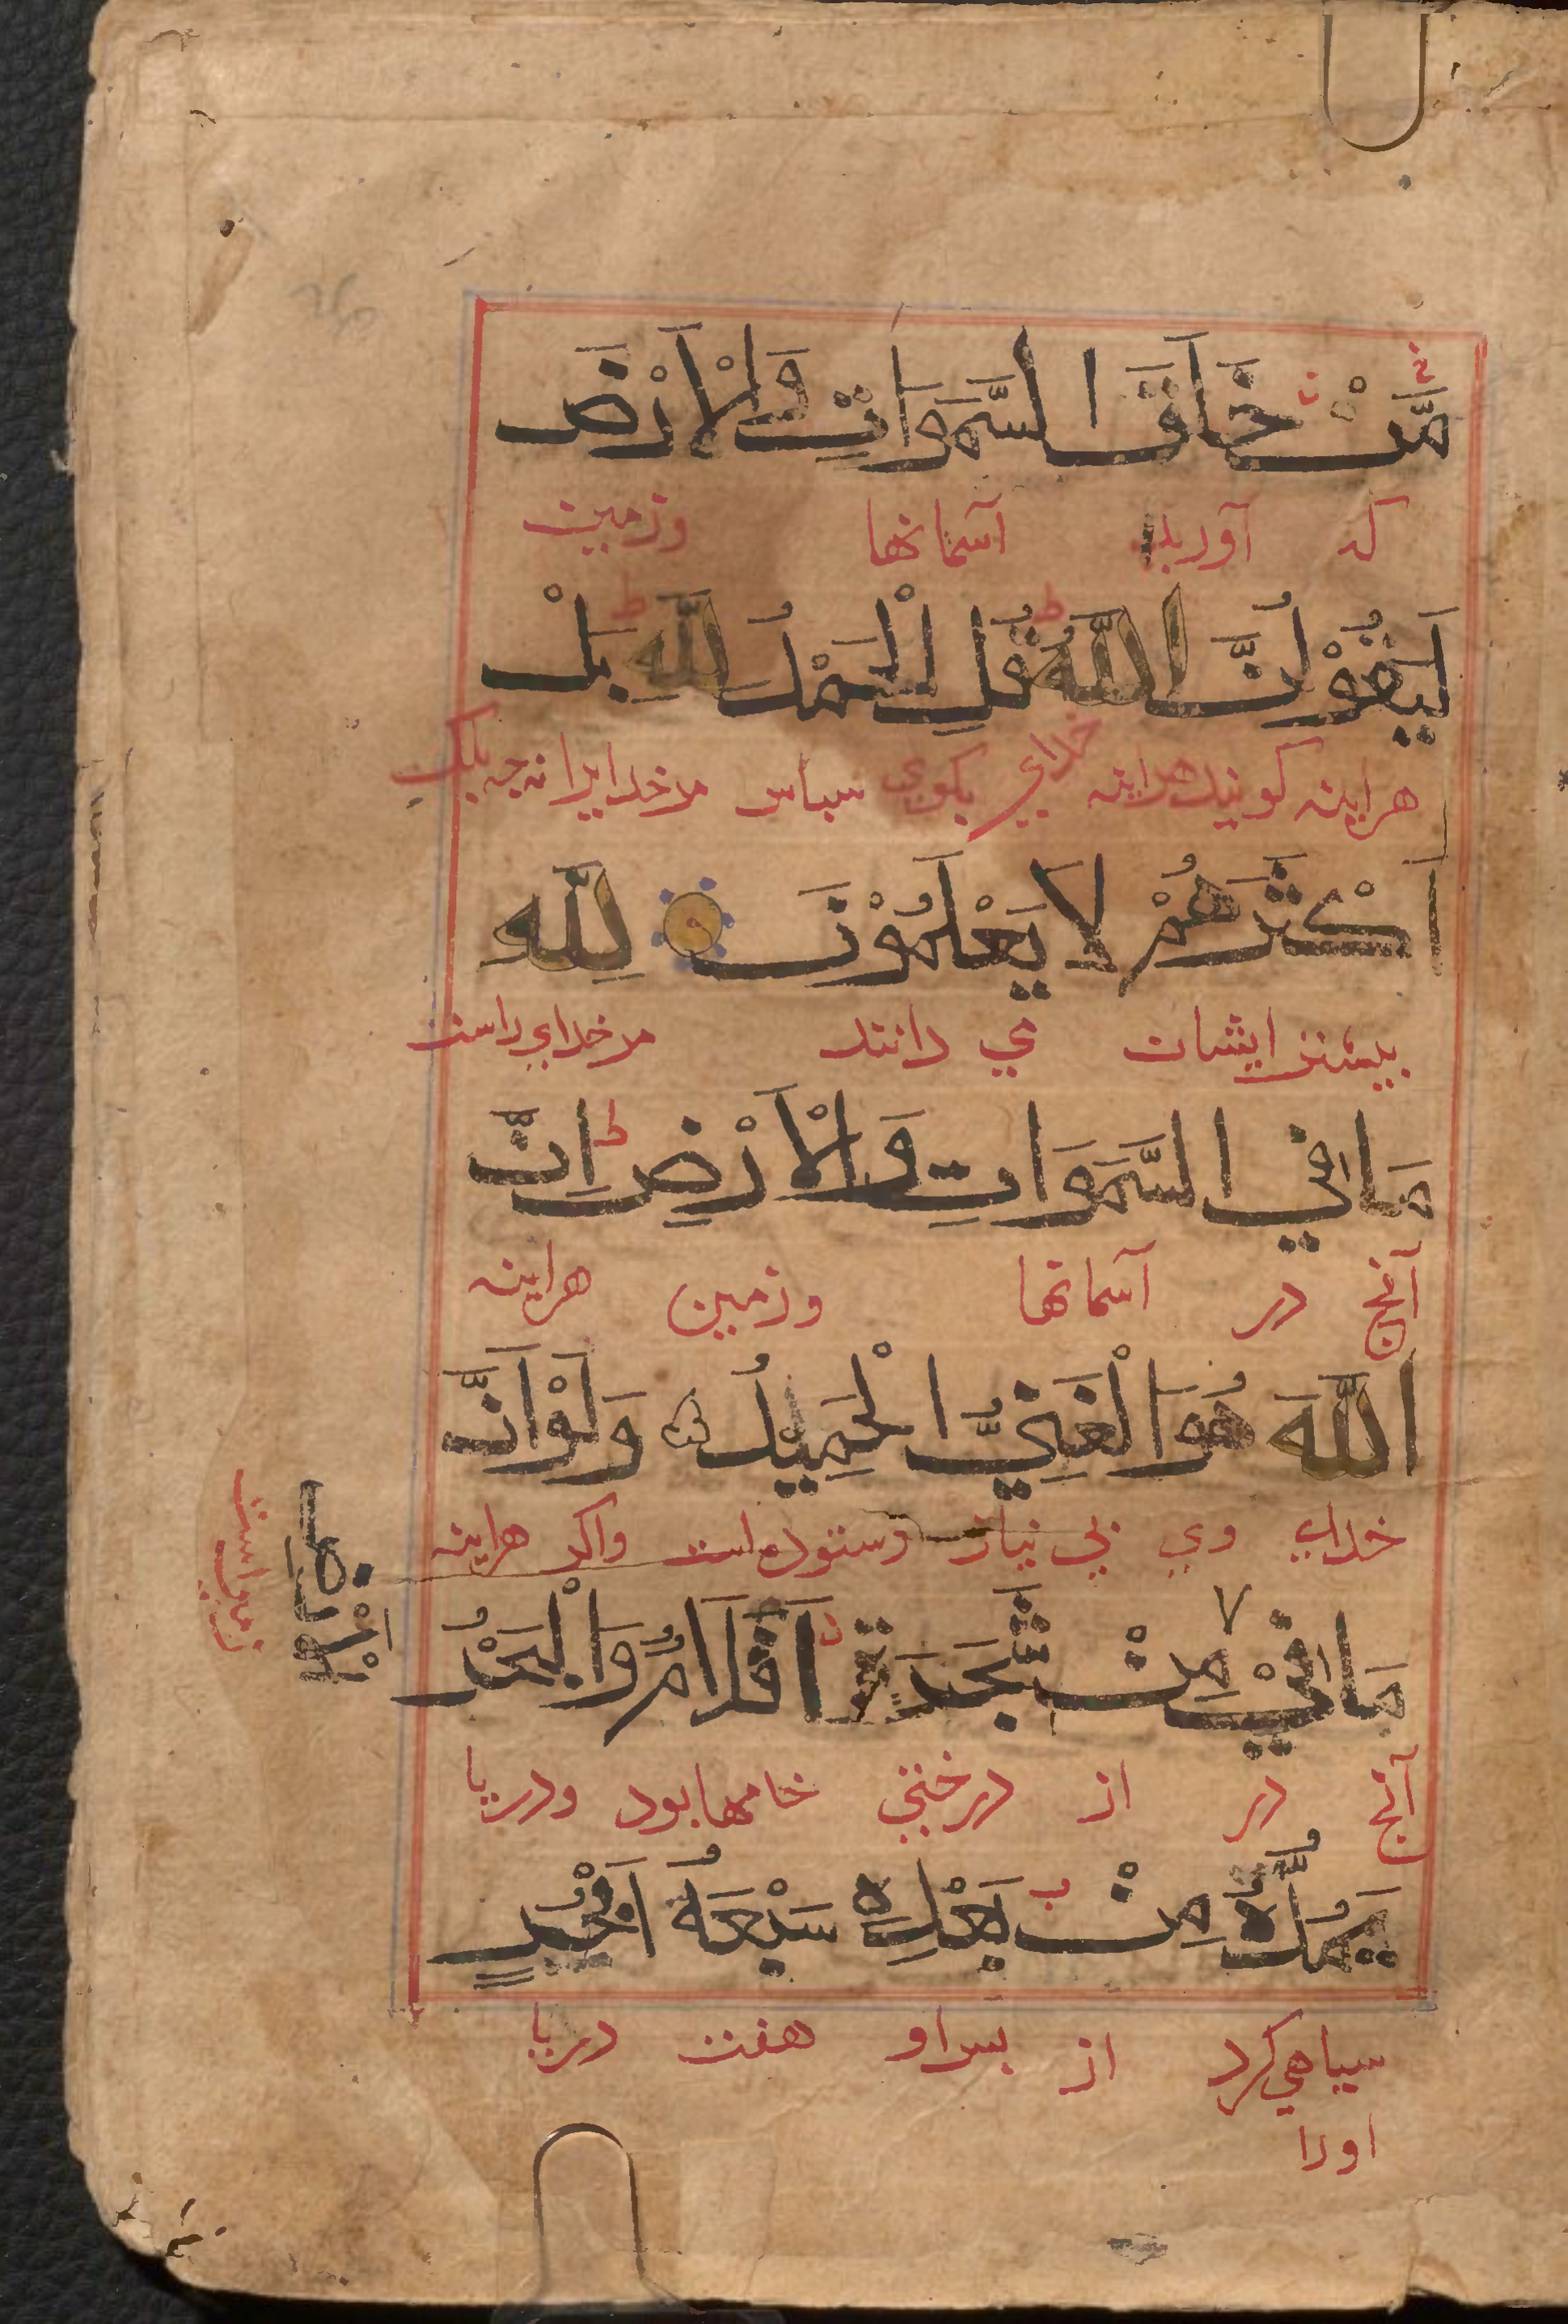 مَّنْ خَلَقَ السَّمَوَاتِ وَالْاَرْضَ
که آورید آسمانها وزمین
لَيَقُوْلُنَّ اللّٰهُ قُلِ الْحَمْدُ لِلّٰهِ بَلْ
هراینه کویند هراینه خدای بکوی سباس مر خدایرا نه چه بلک
اَكْثَرُهُمْ لَا يَعْلَمُوْنَ لِلّٰهِ
بیشتر ایشان نمی دانند مر خدای راست
مَا فِي السَّمَوَاتِ وَالْاَرْضِ اِنَّ
آنج در آسمانها وزمین هراینه
اللّٰهَ هُوَ الْغَنِيُّ الْحَمِيْدُ وَلَوْ اَنَّ
خدای وی بی نیاز وستوده است واکر هراینه
مَا فِيْ مِنْ شَجَرَةٍ اَقْلَامٌ وَالْبَحْرُ
الْاَرْضِ
زمین است
آنج در از درختی خامها بود ودریا
يَمُدُّهُ مِنْ بَعْدِهِ سَبْعَةُ اَبْحُرٍ
سیاهی کرد از بس او هفت دریا
اورا